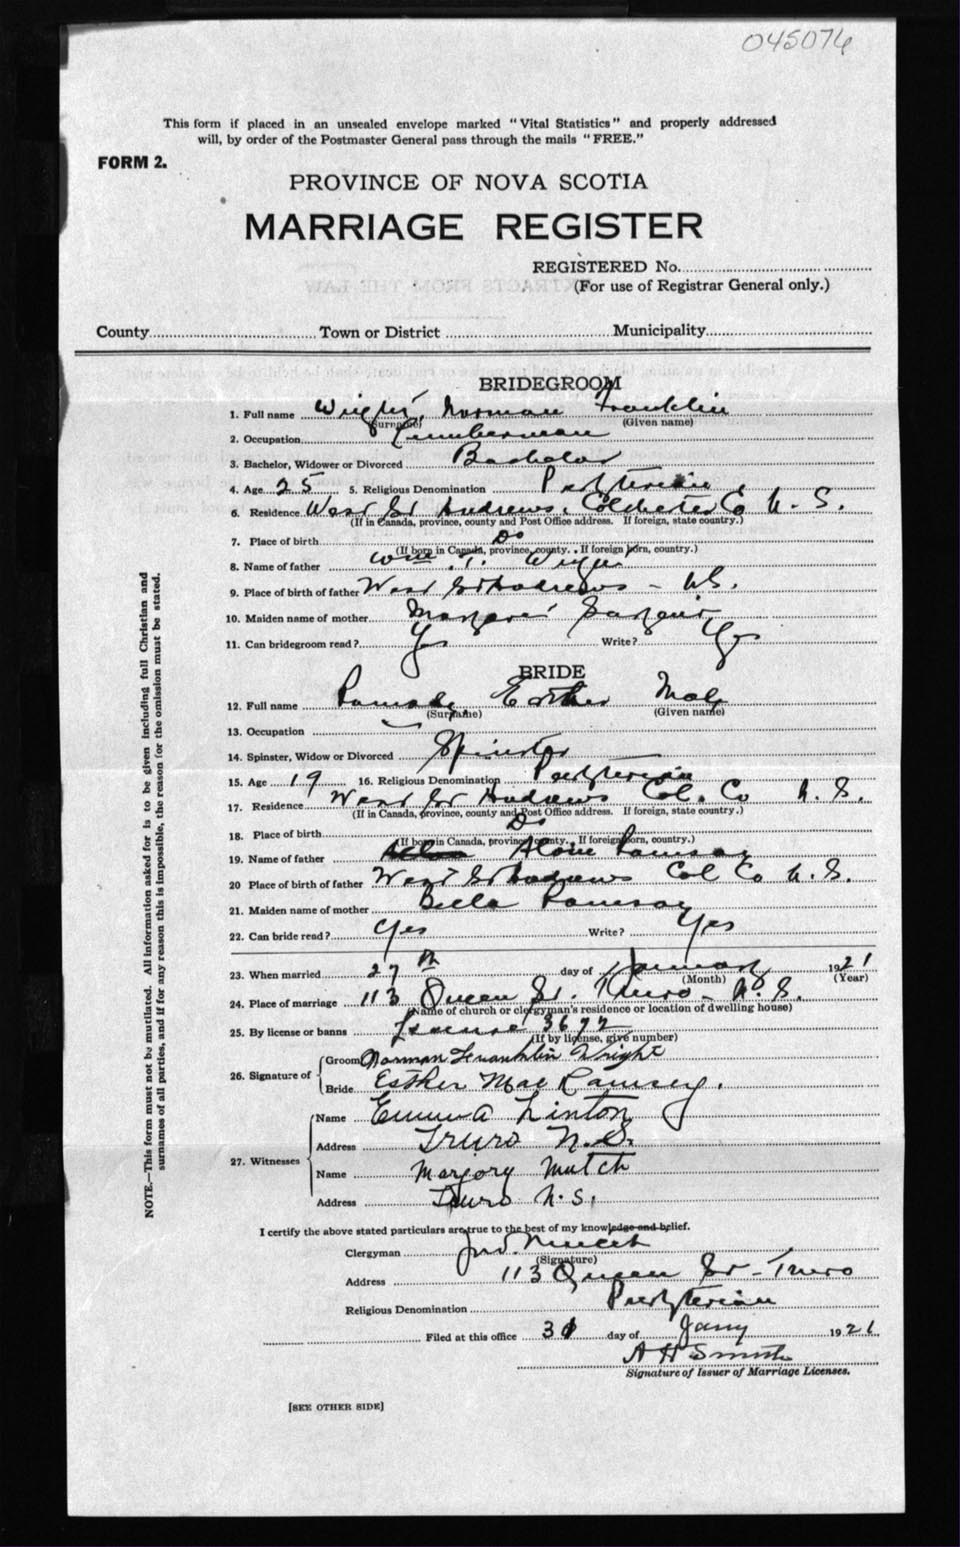 045076
This form if placed in an unsealed envelope marked "Vital Statistics" and properly addressed
will, by order of the Postmaster General pass through the mails "FREE."
FORM 2.
PROVINCE OF NOVA SCOTIA
MARRIAGE REGISTER
REGISTERED No.
(For use of Registrar General only.)
County Town or District Municipality
BRIDEGROOM
1. Full name Wright, Norman Franklin
(Surname) (Given name)
2. Occupation Lumberman
3. Bachelor, Widower or Divorced Bachelor
4. Age 25 5. Religious Denomination Presbyterian
6. Residence West St Andrews, Colchester Co N. S.
(If in Canada, province, county and Post Office address. If foreign, state country.)
7. Place of birth Do
(If born in Canada, province, county. If foreign born, country.)
8. Name of father Wm. T. Wright
9. Place of birth of father West St Andrews - NS.
10. Maiden name of mother Margaret
11. Can bridegroom read? Yes Write? Yes
BRIDE
12. Full name Ramsay Esther Mae
(Surname) (Given name)
13. Occupation
14. Spinster, Widow or Divorced Spinster
15. Age 19 16. Religious Denomination Presbyterian
17. Residence West St Andrews Col. Co N. S.
(If in Canada, province, county and Post Office address. If foreign, state country.)
18. Place of birth Do
(If born in Canada, province, county. If foreign born, country.)
19. Name of father Ramsay
20 Place of birth of father West St Andrews Col Co N. S.
21. Maiden name of mother Bella Ramsay
22. Can bride read? Yes Write? Yes
23. When married 27th day of January 1921
(Month) (Year)
24. Place of marriage 113 Queen St. Truro - N. S.
(Name of church or clergyman's residence or location of dwelling house)
25. By license or banns License 3672
(If by license, give number)
26. Signature of
Groom Norman Franklin Wright
Bride Esther Mae Ramsey.
27. Witnesses
Name Emma Linton
Address Truro N.S.
Name Marjory Mutch
Address Truro N.S.
I certify the above stated particulars are true to the best of my knowledge and belief.
Clergyman Jno. Mutch
(Signature)
Address 113 Queen St - Truro
Religious Denomination Presbyterian
Filed at this office 31 day of Jany 1921
A H Smith
Signature of Issuer of Marriage Licenses.
[SEE OTHER SIDE]
NOTE.—This form must not be mutilated. All information asked for is to be given including full Christian and
surnames of all parties, and if for any reason this is impossible, the reason for the omission must be stated.